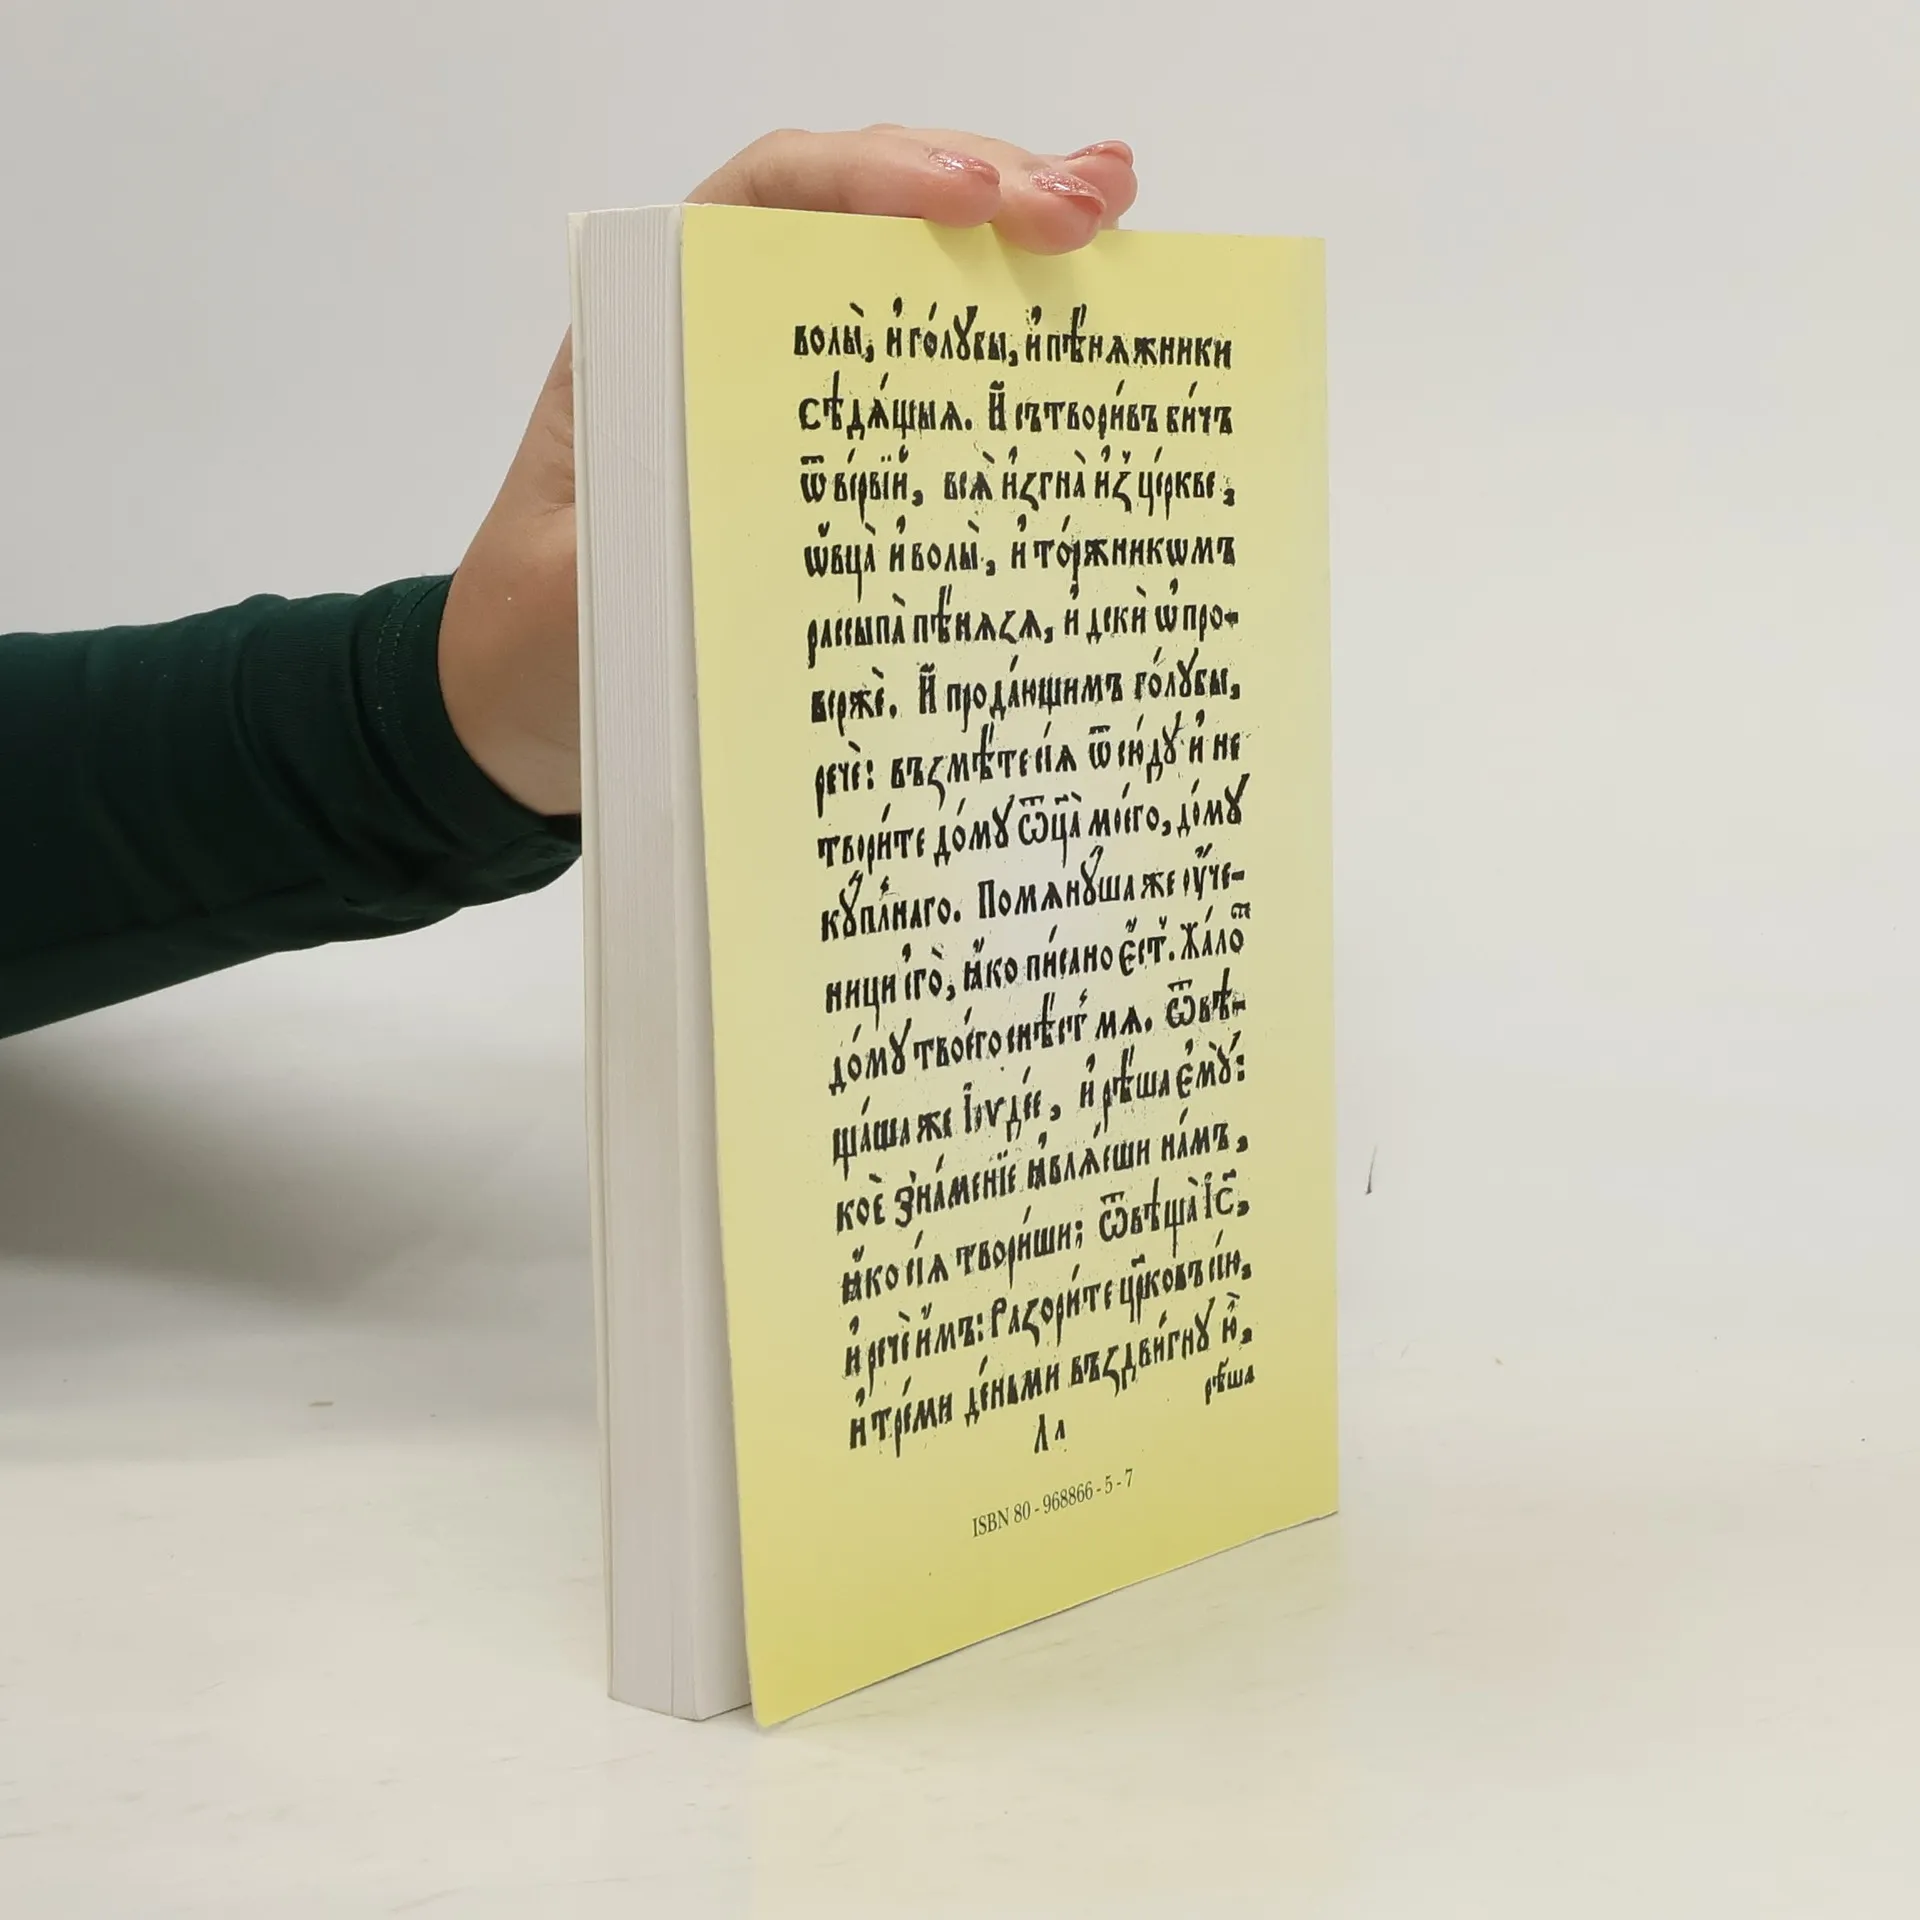 волы̀, и҆ го́лꙋбы, и҆ пѣ́нѧжники
сѣдѧ́щыѧ. И҆ сътвори́въ би́чъ
ѿ ве́рвїи҆, всѧ̀ и҆згна̀ и҆з̾ це́ркве,
ѡ҆вца̀ и҆ волы̀, и҆ то́ржникѡмъ
рассыпа̀ пѣ́нѧзѧ, и҆ дскѝ ѡ҆про-
вержѐ. И҆ продаю́щимъ го́лꙋбы,
речѐ: възмѣ́те сїѧ̀ ѿ сю́дꙋ и҆ не
твори́те до́мꙋ ѿц҃а̀ моего̀, до́мꙋ
кꙋ́плнаго. Помѧнꙋ́ша же ѹ҆че-
ници є҆го̀, ꙗ҆́ко пи́сано є҆́ст̾. Жа́лоⷭ҇
до́мꙋ твоего̀ снѣ́ст̾ мѧ. Ѿвѣ-
ща́ша же І҆ѹде́е, и҆ рѣ́ша є҆мꙋ̀:
коѐ зна́менїе ꙗ҆влѧ́еши на́мъ,
ꙗ҆́ко сїѧ̀ твори́ши; Ѿвѣща̀ І҆с҃,
и҆ речѐ и҆̀мъ: Разори́те цр҃ковъ сїю̀,
и҆ тре́ми де́ньми въздви́гнꙋ ю҆̀,
рѣ́ша
ISBN 80 - 968866 - 5 - 7